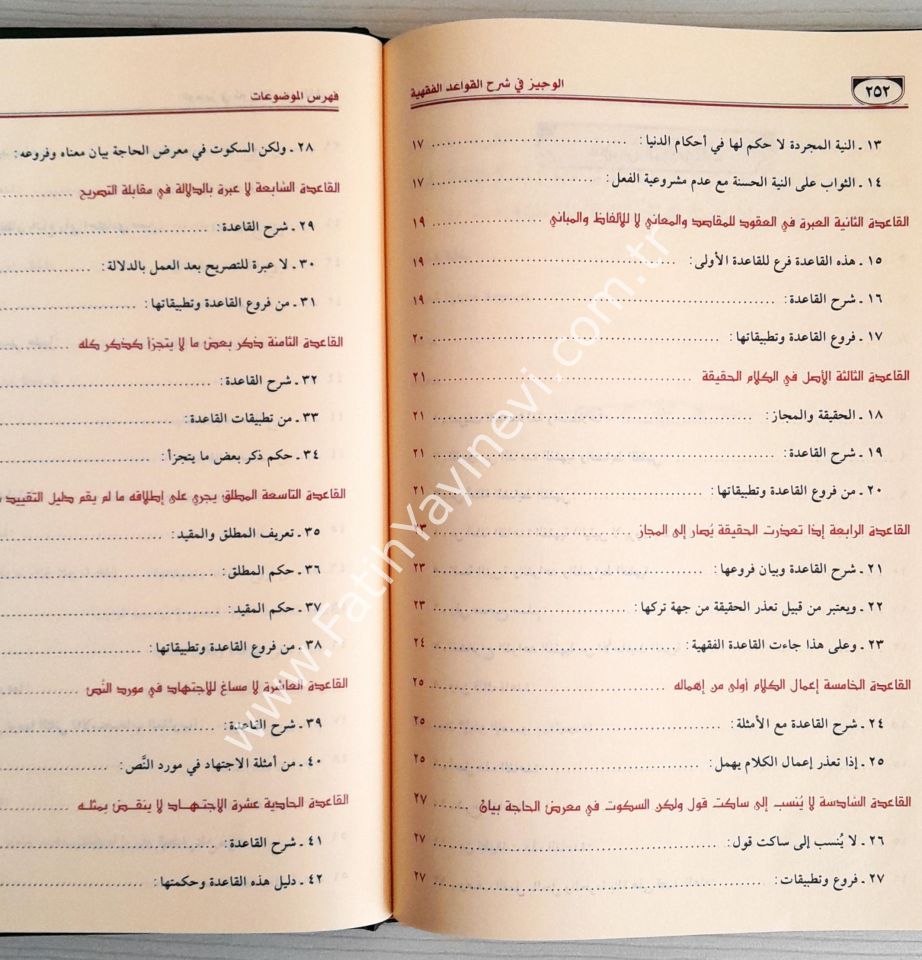 ٢٥٢
الوجيز في شرح القواعد الفقهية
١٣ ـ النية المجردة لا حكم لها في أحكام الدنيا : ........ ١٧
١٤ ـ الثواب على النية الحسنة مع عدم مشروعية الفعل : ........ ١٧
القاعدة الثانية العبرة في العقود للمقاصد والمعاني لا للألفاظ والمباني ١٩
١٥ ـ هذه القاعدة فرع للقاعدة الأولى : ........ ١٩
١٦ ـ شرح القاعدة : ........ ١٩
١٧ ـ فروع القاعدة وتطبيقاتها : ........ ٢٠
القاعدة الثالثة الأصل في الكلام الحقيقة ........ ٢١
١٨ ـ الحقيقة والمجاز : ........ ٢١
١٩ ـ شرح القاعدة : ........ ٢١
٢٠ ـ من فروع القاعدة وتطبيقاتها : ........ ٢١
القاعدة الرابعة إذا تعذرت الحقيقة يُصار إلى المجاز ........ ٢٣
٢١ ـ شرح القاعدة وبيان فروعها : ........ ٢٣
٢٢ ـ ويعتبر من قبيل تعذر الحقيقة من جهة تركها : ........ ٢٣
٢٣ ـ وعلى هذا جاءت القاعدة الفقهية : ........ ٢٤
القاعدة الخامسة إعمال الكلام أولى من إهماله ........ ٢٥
٢٤ ـ شرح القاعدة مع الأمثلة : ........ ٢٥
٢٥ ـ إذا تعذر إعمال الكلام يهمل : ........ ٢٥
القاعدة السّادسة لا يُنسب إلى ساكت قول ولكن السكوت في معرض الحاجة بيانٌ ...... ٢٧
٢٦ ـ لا يُنسب إلى ساكت قول : ........ ٢٧
٢٧ ـ فروع وتطبيقات : ........ ٢٧
فهرس الموضوعات
٢٨ ـ ولكن السكوت في معرض الحاجة بيان معناه وفروعه :
القاعدة السّابعة لا عبرة بالدلالة في مقابلة التصريح
٢٩ ـ شرح القاعدة : ........
٣٠ ـ لا عبرة للتصريح بعد العمل بالدلالة : ........
٣١ ـ من فروع القاعدة وتطبيقاتها : ........
القاعدة الثامنة ذكر بعض ما لا يتجزأ كذكر كله ........
٣٢ ـ شرح القاعدة : ........
٣٣ ـ من تطبيقات القاعدة : ........
٣٤ ـ حكم ذكر بعض ما يتجزأ : ........
القاعدة التاسعة المطلق يجري على إطلاقه ما لم يقم دليل التقييد
٣٥ ـ تعريف المطلق والمقيد : ........
٣٦ ـ حكم المطلق : ........
٣٧ ـ حكم المقيد : ........
٣٨ ـ من فروع القاعدة وتطبيقاتها : ........
القاعدة العاشرة لا مساغ للاجتهاد في مورد النّص ........
٣٩ ـ شرح القاعدة : ........
٤٠ ـ من أمثلة الاجتهاد في مورد النَّص : ........
القاعدة الحادية عشرة الاجتهـاد لا ينقـض بمثلـه ........
٤١ ـ شرح القاعدة : ........
٤٢ ـ دليل هذه القاعدة وحكمتها : ........
www.FatihYayinevi.com.tr